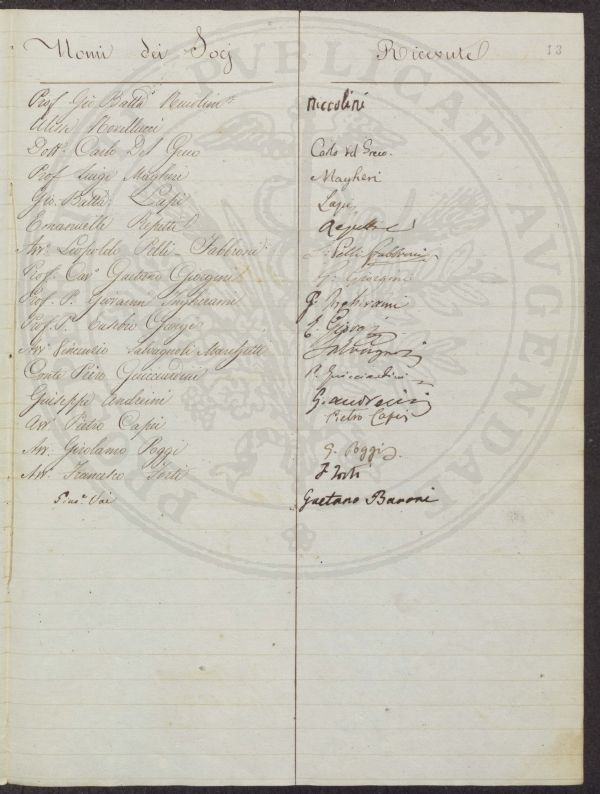 Nomi dei Socj Ricevute 13
Prof. Gio Batta Niccolini niccolini
Ulisse Novellucci
Dott. Carlo Del Greco Carlo del Greco.
Prof. Luigi Magheri Magheri
Gio. Batta Lapi Lapi
Emanuelle Repetti Repetti
Avv. Leopoldo Pelli-Fabbroni L Pelli Fabbroni
Prof. Cav. Gaetano Giorgini G. Giorgini
Prof. P. Giovanni Inghirami G. Inghirami
Prof. P. Eusebio Giorgi E. Giorgi
Avv. Vincenzio Salvagnoli Marchetti Salvagnoli
Conte Piero Guicciardini P. Guicciardini
Giuseppe Andreini G. andreini
Avv. Pietro Capei Pietro Capei
Avv. Girolamo Poggi G. Poggi
Avv. Francesco Forti F Forti
Vai Gaetano Baroni
PROSPERITATI PUBLICAE AUGENDAE